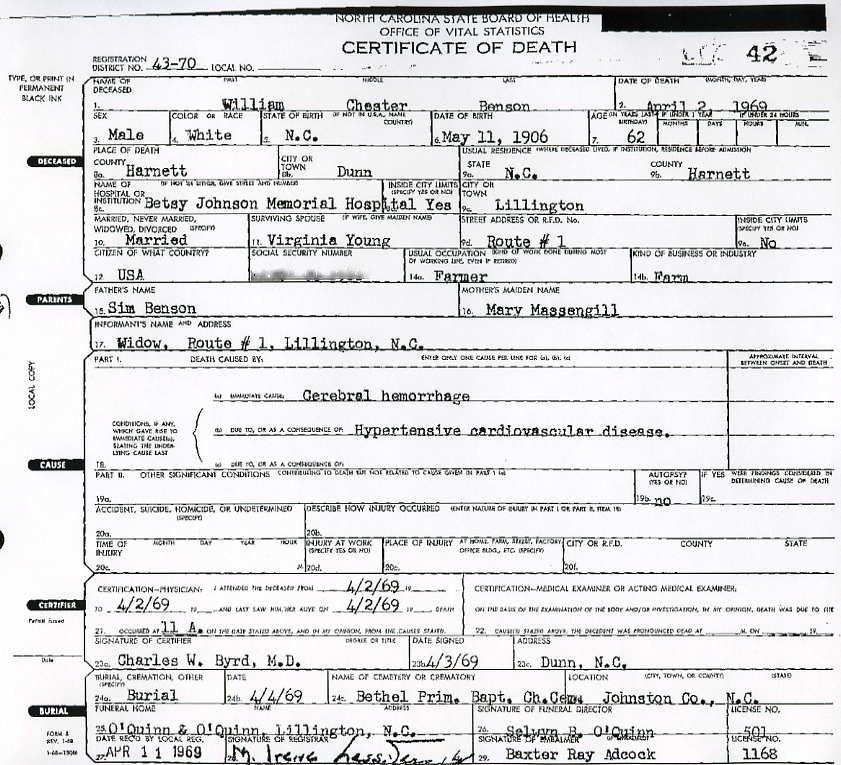 NORTH CAROLINA STATE BOARD OF HEALTH
OFFICE OF VITAL STATISTICS
CERTIFICATE OF DEATH
42
REGISTRATION
DISTRICT NO. 43-70 LOCAL NO.
TYPE, OR PRINT IN
PERMANENT
BLACK INK
NAME OF
DECEASED
FIRST MIDDLE LAST
DATE OF DEATH (MONTH, DAY, YEAR)
1. William Chester Benson 2. April 2, 1969
SEX COLOR OR RACE STATE OF BIRTH (IF NOT IN U.S.A., NAME COUNTRY) DATE OF BIRTH AGE (IN YEARS LAST BIRTHDAY) IF UNDER 1 YEAR IF UNDER 24 HOURS
MONTHS DAYS HOURS MIN.
3. Male 4. White 5. N.C. 6. May 11, 1906 7. 62
DECEASED
PLACE OF DEATH USUAL RESIDENCE (WHERE DECEASED LIVED, IF INSTITUTION, RESIDENCE BEFORE ADMISSION
COUNTY CITY OR TOWN STATE COUNTY
8a. Harnett 8b. Dunn 9a. N.C. 9b. Harnett
NAME OF (IF NOT IN EITHER, GIVE STREET AND NUMBER) INSIDE CITY LIMITS (SPECIFY YES OR NO) CITY OR TOWN
HOSPITAL OR
INSTITUTION Betsy Johnson Memorial Hospital Yes 9c. Lillington
8c.
MARRIED, NEVER MARRIED, WIDOWED, DIVORCED (SPECIFY) SURVIVING SPOUSE (IF WIFE, GIVE MAIDEN NAME) STREET ADDRESS OR R.F.D. No. INSIDE CITY LIMITS (SPECIFY YES OR NO)
10. Married 11. Virginia Young 9d. Route # 1 9e. No
CITIZEN OF WHAT COUNTRY? SOCIAL SECURITY NUMBER USUAL OCCUPATION (KIND OF WORK DONE DURING MOST OF WORKING LIFE, EVEN IF RETIRED) KIND OF BUSINESS OR INDUSTRY
12. USA 14a. Farmer 14b. Farm
PARENTS
FATHER'S NAME MOTHER'S MAIDEN NAME
15. Sim Benson 16. Mary Massengill
INFORMANT'S NAME AND ADDRESS
17. Widow, Route # 1, Lillington, N.C.
LOCAL COPY
PART I. DEATH CAUSED BY: ENTER ONLY ONE CAUSE PER LINE FOR (a), (b), (c) APPROXIMATE INTERVAL BETWEEN ONSET AND DEATH
(a) IMMEDIATE CAUSE: Cerebral hemorrhage
CONDITIONS, IF ANY,
WHICH GAVE RISE TO
IMMEDIATE CAUSE(a),
STATING THE UNDER-
LYING CAUSE LAST
(b) DUE TO, OR AS A CONSEQUENCE OF: Hypertensive cardiovascular disease.
18. (c) DUE TO, OR AS A CONSEQUENCE OF:
CAUSE
PART II. OTHER SIGNIFICANT CONDITIONS CONTRIBUTING TO DEATH BUT NOT RELATED TO CAUSE GIVEN IN PART I (a) AUTOPSY? (YES OR NO) IF YES WERE FINDINGS CONSIDERED IN DETERMINING CAUSE OF DEATH
19a. 19b. no 19c.
ACCIDENT, SUICIDE, HOMICIDE, OR UNDETERMINED (SPECIFY) DESCRIBE HOW INJURY OCCURRED (ENTER NATURE OF INJURY IN PART I OR PART II, ITEM 18)
20a. 20b.
TIME OF INJURY MONTH DAY YEAR HOUR INJURY AT WORK (SPECIFY YES OR NO) PLACE OF INJURY AT HOME, FARM, STREET, FACTORY, OFFICE BLDG., ETC. (SPECIFY) CITY OR R.F.D. COUNTY STATE
20c. M 20d. 20e. 20f.
CERTIFICATION—PHYSICIAN: I ATTENDED THE DECEASED FROM 4/2/69 19 CERTIFICATION—MEDICAL EXAMINER OR ACTING MEDICAL EXAMINER:
CERTIFIER
TO 4/2/69 19 AND LAST SAW HIM/HER ALIVE ON 4/2/69 19 DEATH ON THE BASIS OF THE EXAMINATION OF THE BODY AND/OR INVESTIGATION, IN MY OPINION, DEATH WAS DUE TO THE
Permit Issued
21. OCCURRED AT 11 A. ON THE DATE STATED ABOVE, AND IN MY OPINION, FROM THE CAUSES STATED. 22. CAUSE(S) STATED ABOVE, THE DECEDENT WAS PRONOUNCED DEAD AT M. ON 19
Date
SIGNATURE OF CERTIFIER DEGREE OR TITLE DATE SIGNED ADDRESS
23a. Charles W. Byrd, M.D. 23b. 4/3/69 23c. Dunn, N.C.
BURIAL, CREMATION, OTHER (SPECIFY) DATE NAME OF CEMETERY OR CREMATORY LOCATION (CITY, TOWN, OR COUNTY) (STATE)
24a. Burial 24b. 4/4/69 24c. Bethel Prim. Bapt. Ch.Cem. Johnston Co., N.C.
BURIAL
FUNERAL HOME NAME ADDRESS SIGNATURE OF FUNERAL DIRECTOR LICENSE NO.
25. O'Quinn & O'Quinn, Lillington, N.C. 26. Selwyn B. O'Quinn 501
FORM 8
REV. 1-68
DATE REC'D BY LOCAL REG. SIGNATURE OF REGISTRAR SIGNATURE OF EMBALMER LICENSE NO.
27. APR 11 1969 28. 29. Baxter Ray Adcock 1168